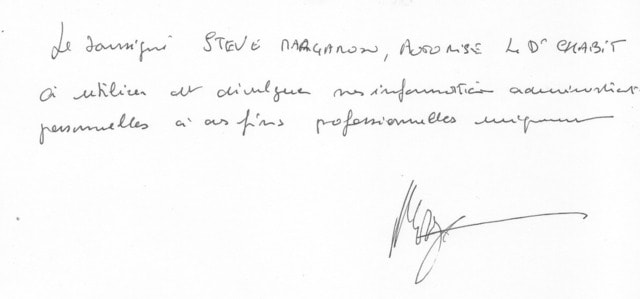 Le soussigné STEVE MARGARON, AUTORISE LE Dr CHABIT
à utiliser et divulguer mes informations administrat
personnelles à des fins professionnelles uniquement